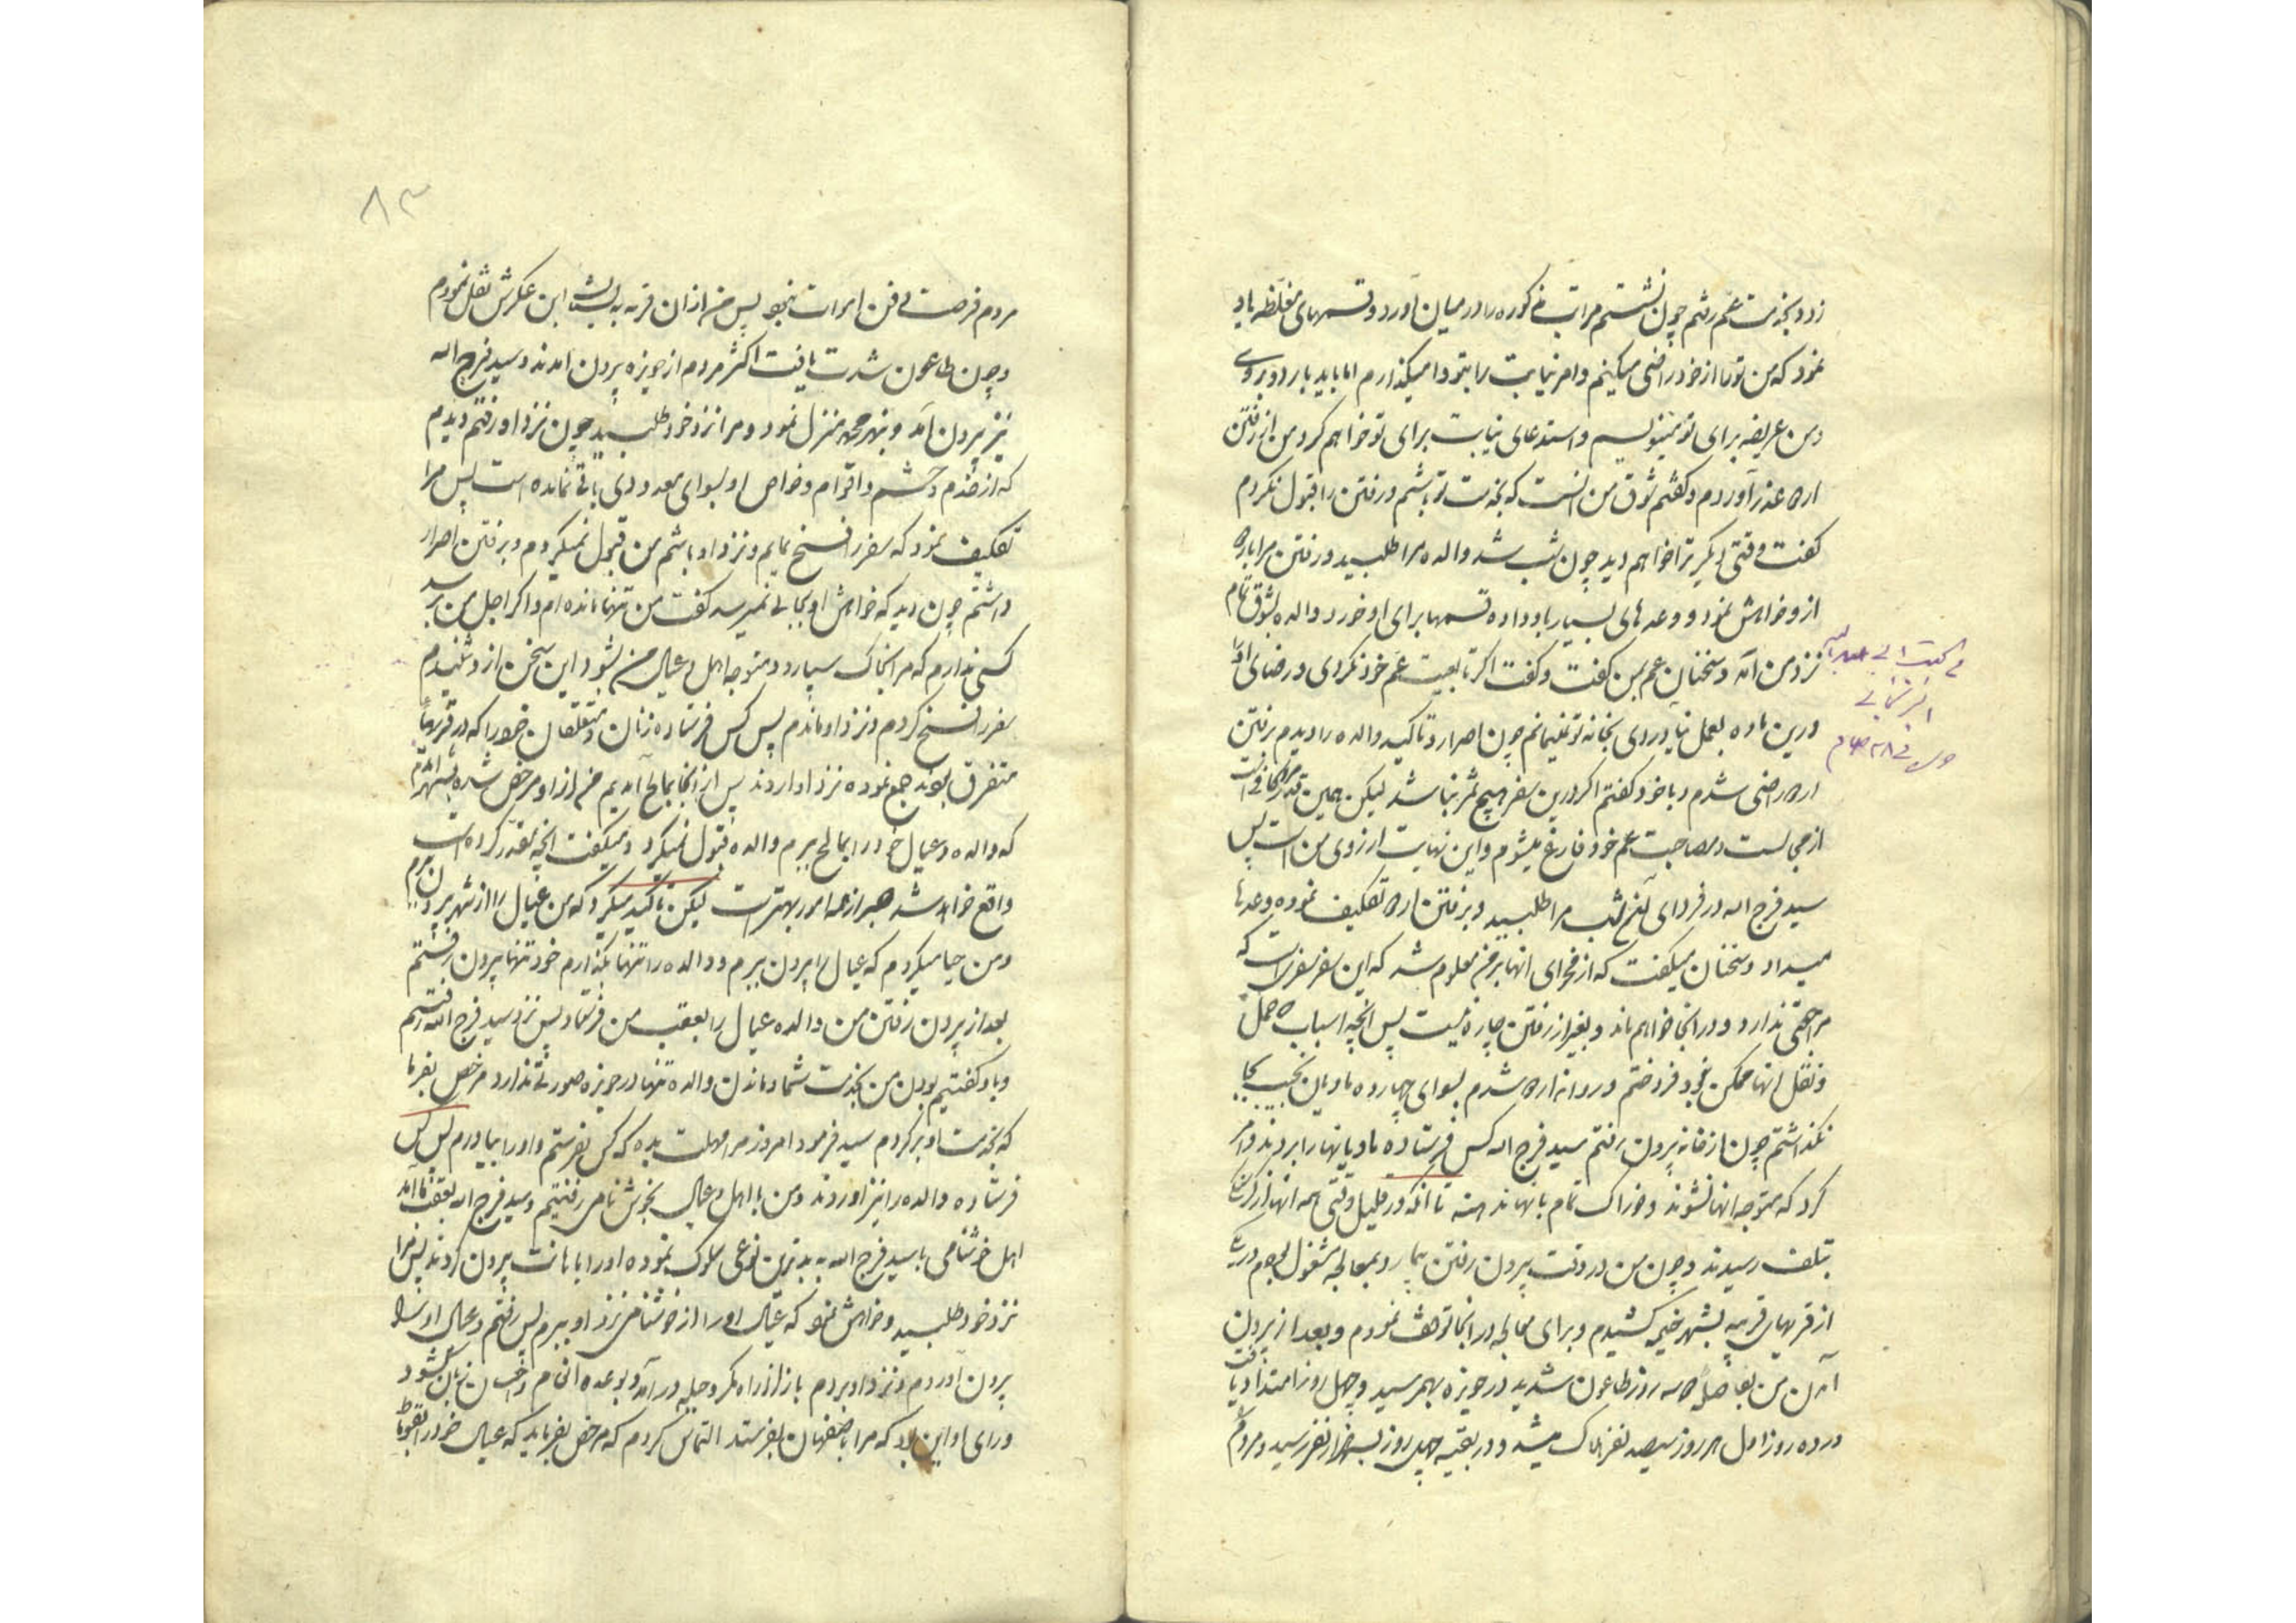 زد و بخدمت عم رفتم چون نشستم مراتب مذکوره را در میان آورد و قسمهای مغلظه یاد
نمود که من تو را از خود راضی میکنم و امر نیابت را بتو وا میگذارم اما باید باردو بروی
و من عریضه برای تو مینویسم و استدعای نیابت برای تو خواهم کرد من از رفتن
اردو عذر آوردم و گفتم شوق من آنست که بخدمت تو باشم و رفتن را قبول نکردم
گفت وقتی دیگر ترا خواهم دید چون شب شد والده مرا طلبید و رفتن مرا باردو
ازو خواهش نمود و وعده های بسیار باو داده قسمها برای او خورد والده بشوق تمام
نزد من آمد و سخنان عم بمن گفت و گفت اگر تابعیت عم خود نکردی و رضای او را
درین ماده بعمل نیاوردی بخانه تو نمیمانم چون اصرار و تاکید والده را دیدم برفتن
اردو راضی شدم و با خود گفتم اگر درین سفر هیچ ثمر نباشد لیکن همین قدر مرا کافی است
از مجالست و مصاحبت عم خود فارغ میشوم و این نهایت ارزوی من است پس
سید فرج الله در فردای آن شب مرا طلبید و برفتن اردو تکلیف نموده وعدها
میداد و سخنان میگفت که از فحوای انها بر من معلوم شد که این سفر سفریست که
مراجعتی ندارد و در انجا خواهم ماند و بغیر از رفتن چاره نیست پس انچه اسباب که حمل
و نقل انها ممکن نبود فروختم و روانه اردو شدم بسوای چهارده مادیان نجیب بجا
نگذاشتم چون از خانه بیرون رفتم سید فرج الله کس فرستاده مادیانها را بردند و امر
کرد که متوجه انها نشوند و خوراک تمام بانها ندهند تا انکه در قلیل وقتی همه انها
تلف رسیدند و چون من در وقت بیرون رفتن بیمار و بمعالجه مشغول بودم در یکی
از قریهای قریبه بشهر خیمه کشیدم و برای معالجه در انجا توقف نمودم و بعد از بیرون
آمدن من بفاصله سه روز طاعون شدید در حویزه بهمرسید و چهل روز امتداد یافت
در ده روز اول هر روز سیصد نفر هلاک میشد و در بقیه چهل روز بهزار نفر رسید و مردم
مردم فرصت دفن اموات نبود پس من از ان قریه به عکرش نقل نمودم
و چون طاعون شدت یافت اکثر مردم از حویزه بیرون امدند و سید فرج الله
نیز بیرون آمد و بنهر محمد منزل نمود و مرا نزد خود طلبید چون نزد او رفتم دیدم
که از خدم و حشم و اقوام و خواص او بسوای معدودی باقی نمانده است پس مرا
تکلیف نمود که سفر را فسخ نمایم و نزد او باشم من قبول نمیکردم و برفتن اصرار
داشتم چون دید که خواهش او بجائی نمیرسد گفت من تنها مانده ام و اگر اجل من برسد
کسی ندارم که مرا بخاک سپارد و متوجه اهل و عیال من بشود این سخن ازو شنیدم
سفر را فسخ کردم و نزد او ماندم پس کس فرستاده زنان و متعلقان خود را که در قریها
متفرق بودند جمع نموده نزد او اوردند پس از انجا بمالح آمدیم من از او مرخص شده بشهر آمدم
که والده و عیال خود را بمالح ببرم والده قبول نمیکرد و میگفت انچه مقدر کرده است
واقع خواهد شد صبر از همه امور بهتر است لیکن تاکید میکرد که من عیال را از شهر بیرون برم
و من حیا میکردم که عیال را بیرون ببرم و والده را تنها بگذارم خود تنها بیرون رفتم
بعد از بیرون رفتن من والده عیال را بعقب من فرستاد پس نزد سید فرج الله رفتم
و باو گفتم بودن من بخدمت شما و ماندن والده تنها در حویزه صورتی ندارد مرخص بفرما
که بخدمت او برگردم سید فرمود امروز مرا مهلت بده که کس بفرستم و او را بیاورم پس کس
فرستاده والده را نیز اوردند و من با اهل و عیال بخوشنامی رفتیم و سید فرج الله بعقب ما آمد
اهل خوشنامی با سید فرج الله به بدترین نوعی سلوک نموده او را باهانت بیرون کردند پس مرا
نزد خود طلبید و خواهش نمود که عیال او را از خوشنامی نزد او ببرم پس رفتم و عیال او را
بیرون آوردم و نزد او بردم باز از راه مکر و حیله در آمد و بوعده انعام و احسان زبان گشود
و رای او این بود که مرا باصفهان بفرستد التماس کردم که مرخص بفرماید که عیال خود را
۸۳